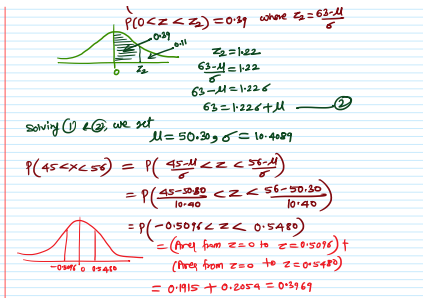 P(0<z<z₂) = 0.39 where z₂ = 63-μ/σ
0.39
0.11
0 z₂
z₂ = 1.22
63-μ/σ = 1.22
63-μ = 1.22σ
63 = 1.22σ+μ —— ②
Solving ① & ②, we get
μ = 50.30, σ = 10.4089
P(45<x<56) = P(45-μ/σ < z < 56-μ/σ)
= P(45-50.30/10.40 < z < 56-50.30/10.40)
= P(-0.5096 < z < 0.5480)
= (Area from z=0 to z=0.5096) +
(Area from z=0 to z=0.5480)
-0.5096 0 0.5480
= 0.1915 + 0.2054 = 0.3969